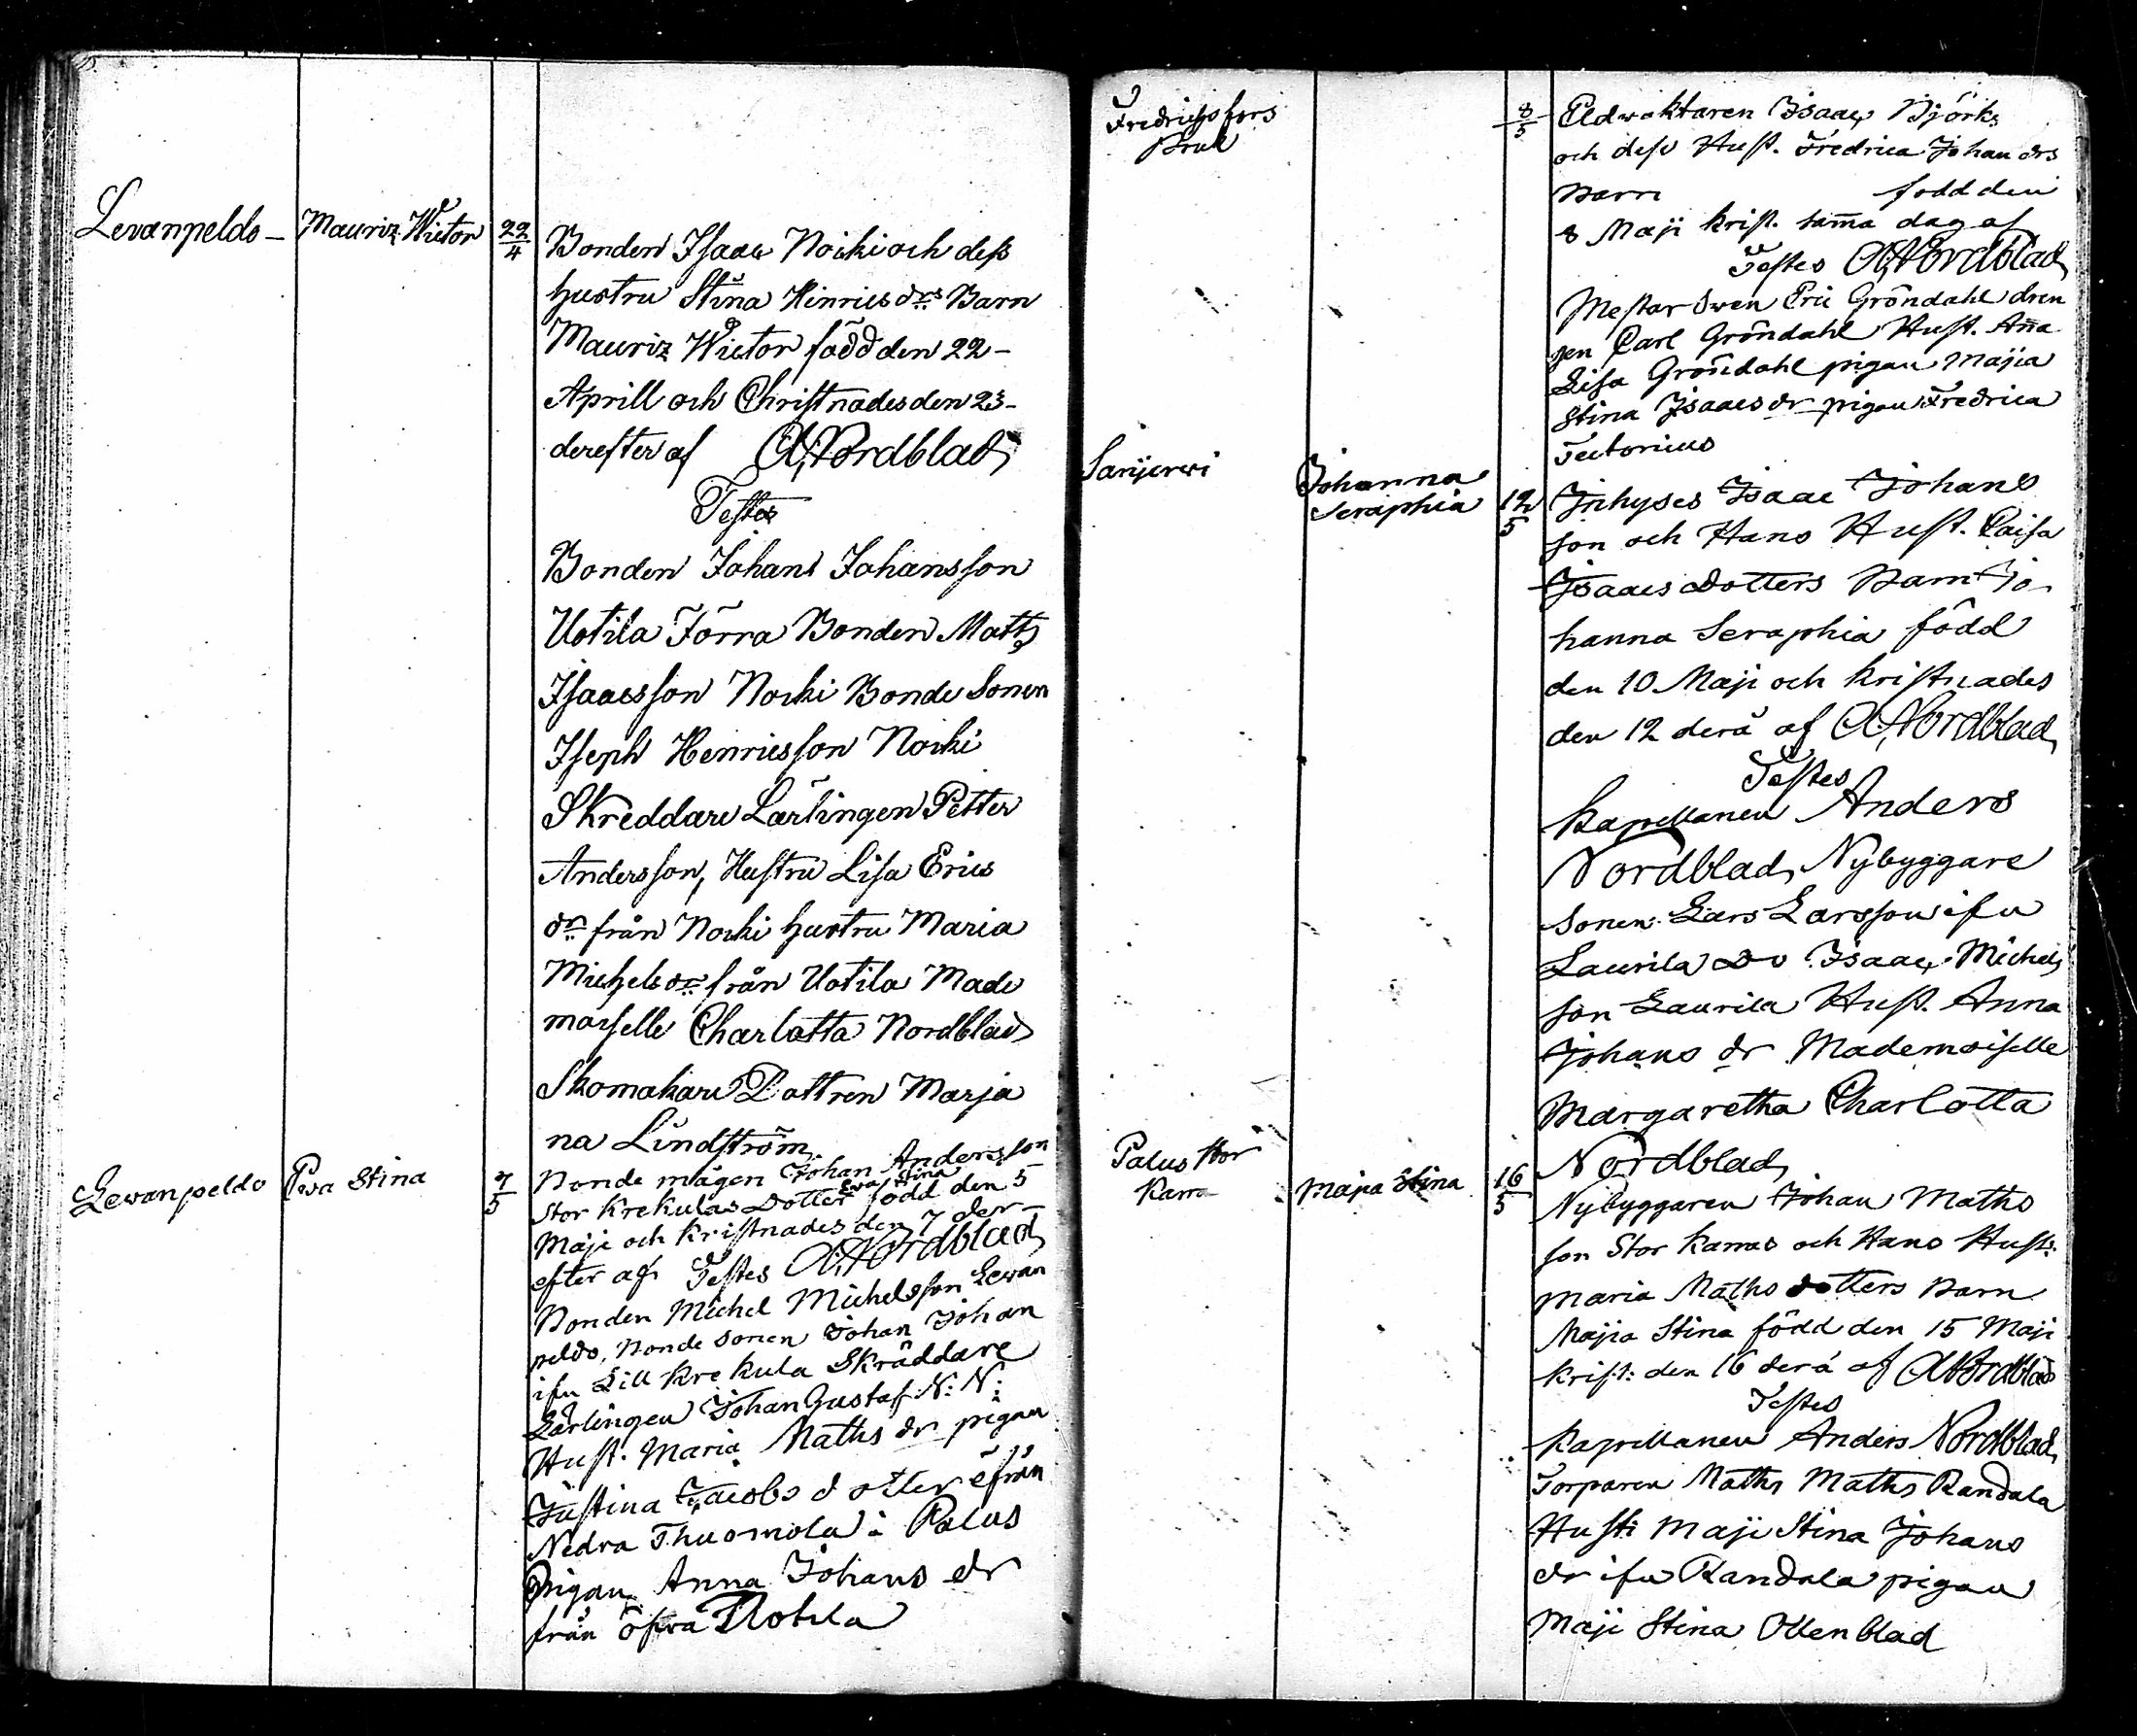 Levanpeldo –
Mauriz Wictor
22/4
Bonden Isaac Noicki och dess
hustru Stina Hinricsdrs Barn
Mauriz Wictor född den 22 –
Aprill och Christnades den 23 –
derefter af A. Nordblad
Testes
Bonden Johans Johansson
Uotila Förra Bonden Matts
Isaacsson Nocki Bonde Sonen
Iseph Henricsson Nocki
Skreddare Lärlingen Petter
Andersson, Hustru Lisa Erics
dr från Nocki hustru Maria
Michelsdr från Uotila Made
moiselle Charlotta Nordblad
Skomakare Dottren Marja
na Lindström
Lewanpeldo
Ewa Stina
7/5
Bonde mågen Johan Andersson
Stor Krekulas Dotter Ewa Stina född den 5
Maji och Kristnades den 7 der–
efter af Testes A. Nordblad
Bonden Michel Michelsson Lewan
peldo, Bonde sonen Johan Johan
ifn Lill Krekula Skräddare
Lärlingen Johan Gustaf N: N:
Hust. Maria Maths dr pigan
Justina Jacobs dotter ifrån
Nedra Thuomola i Palus
Pigan Anna Johans dr
från Öfra Uotila
Fredrichsfors
Bruk
8/5
Eldwaktaren Isaac Björks
och dess Hust. Fredrica Johan drs
Barn född den
8 Maji krist. samma dag af
Testes A. Nordblad
Mestar Swen Eric Gröndahl dren
gen Carl Gröndahl Hust. Anna
Lisa Gröndahl pigan Majia
Stina Isaacs dr pigan Fredrica
Tectorius
Sarijerwi
Johanna
Seraphia
12/5
Inhyses Isaac Johans
son och Hans Hust. Caisa
Isaacs Dotters Barn Jo–
hanna Seraphia född
den 10 Maji och Kristnades
den 12 derå af A. Nordblad
Testes
Kapellanen Anders
Nordblad, Nybyggare
sonen Lars Larsson ifn
Laurila Do Isaac Michels
son Laurila Hust. Anna
Johans dr Mademoiselle
Margaretha Charlotta
Nordblad
Palus Stor
Karra
Maja Stina
16/5
Nybyggaren Johan Maths
son Stor Karras och Hans Hust:
Maria Maths dotters Barn
Majia Stina född den 15 Maji
Krist: den 16 derå af A. Nordblad
Testes
Kapellanen Anders Nordblad
Torparen Maths Maths Randala
Hust: Maji Stina Johans
dr ifn Randala pigan
Maji Stina Ollenblad